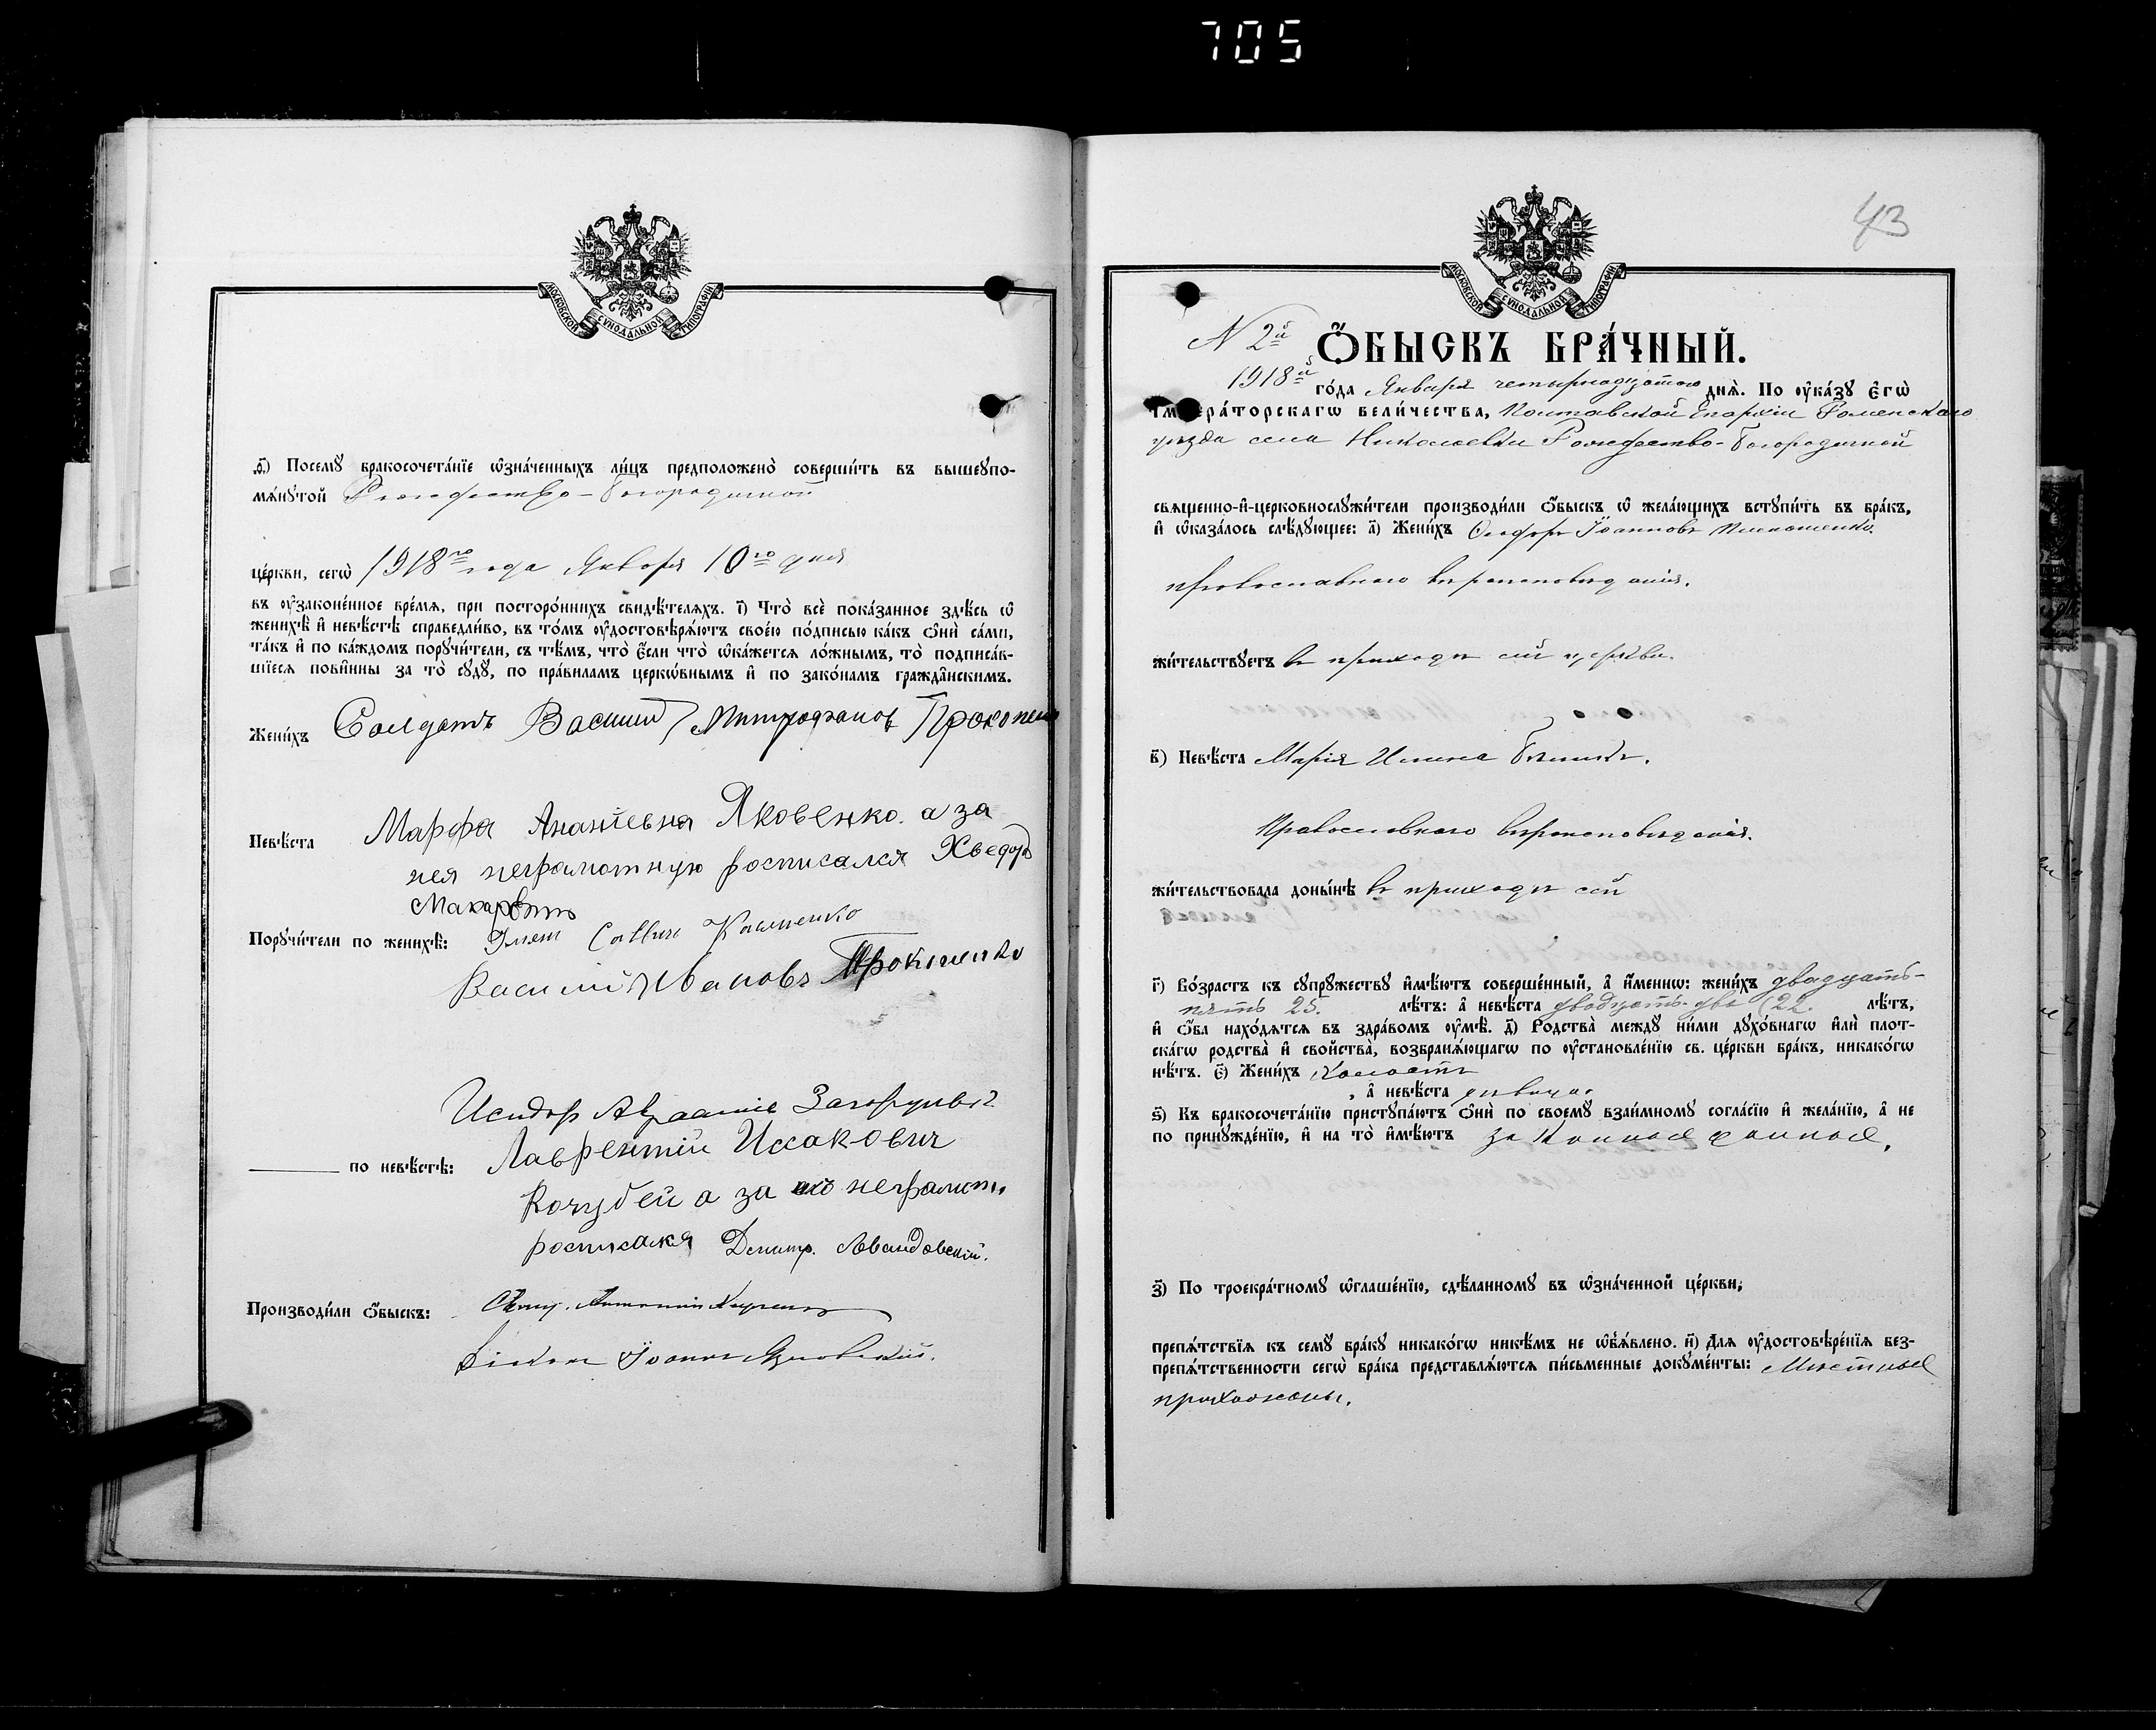 705
МОСКОВСКОЙ СѴНОДАЛЬНОЙ ТИПОГРАФІИ
ѳ҃) Посемꙋ бракосочета́нїе ѡ҆зна́ченныхъ ли́цъ предположено̀ соверши́ть въ вышеꙋпо-
мѧ́нꙋтой Рождество-Богородичной
це́ркви, сегѡ̀ 1918го года Января 10го дня
въ ᲂу҆зако́не́нное вре́мѧ, при посторо́ннихъ свидѣ́телѧхъ. і҃) Что̀ всѐ пока́занное здѣ́сь ѡ҆
женихѣ̀ и҆ невѣ́стѣ справедли́во, въ то́мъ ᲂу҆достовѣрѧ́ютъ свое́ю по́дписью ка́къ ѻ҆нѝ са́ми,
та́къ и҆ по ка́ждомъ порꙋчи́тели, съ тѣ́мъ, что̀ є҆́сли что̀ ѡ҆ка́жетсѧ ло́жнымъ, то̀ подписа́в-
шїесѧ пови́нны за то̀ сꙋдꙋ̀, по пра́виламъ церкѡ́внымъ и҆ по зако́намъ гражда̂нскимъ.
Жени́хъ Солдатъ Василий Митрофановъ Прокопенко
Невѣ́ста Марфа Ананіевна Яковенко. а за
нея неграмотную росписался Хведоръ
Порꙋчи́тели по женихѣ̀: Савви
Василій Ивановъ Прокопенко
Исидор
по невѣ́стѣ: Лаврентій Исакович
Кочубей а за его неграмотн.
росписался Дмитр.
Производи́ли ѻ҆́быскъ: Свящ. Антоній
Діаконъ Іоаннъ
43
МОСКОВСКОЙ СѴНОДАЛЬНОЙ ТИПОГРАФІИ
N 2й Ѻ҆́БЫСКЪ БРА́ЧНЫЙ.
1918й го́да Января четырнадцатого днѧ̀. По ᲂу҆ка́зꙋ є҆гѡ̀
і҆мпера́торскагѡ вели́чества, Полтавской Епархіи Роменскаго
уѣзда села Николаевки Рождество-Богородичной
свѧщенно-и҆-церковнослꙋжи́тели производи́ли ѻ҆́быскъ ѡ҆ жела́ющихъ встꙋпи́ть въ бра́къ,
и҆ ѡ҆каза́лось слѣ́дꙋющее: а҃) Жени́хъ Іоанновъ
православнаго вѣроисповѣданія.
жи́тельствꙋетъ въ приходѣ сей церкви.
в҃) Невѣ́ста Марія
Православнаго вѣроисповѣданія.
жи́тельствовала доны́нѣ въ приходѣ сей
г҃) Во́зрастъ къ сꙋпрꙋ́жествꙋ и҆мѣ́ютъ соверше́нный, а҆ и҆́менно: жени́хъ двадцать-
пять 25. лѣ́тъ: а҆ невѣ́ста двадцать-два (22. лѣ́тъ,
и҆ ѻ҆́ба нахо́дѧтсѧ въ здра́вомъ ᲂу҆мѣ̀. д҃) Родства̀ междꙋ ни́ми дꙋхо́внагѡ и҆лѝ плот-
ска́гѡ родства̀ и҆ свойства̀, возбранѧ́ющагѡ по ᲂу҆становле́нїю св. це́ркви бра́къ, никако́гѡ
нѣ́тъ. є҃) Жени́хъ Холостъ
, а҆ невѣ́ста дѣвица.
ѕ҃) Къ бракосочета́нїю пристꙋпа́ютъ ѻ҆нѝ по своемꙋ̀ взаи́мномꙋ согла́сїю и҆ жела́нїю, а҆ не
по принꙋжде́нїю, и҆ на то̀ и҆мѣ́ютъ
з҃) По троекра́тномꙋ ѡ҆глаше́нїю, сдѣ́ланномꙋ въ ѡ҆зна́ченной це́ркви,
препѧ́тствїѧ къ семꙋ̀ бра́кꙋ никако́гѡ никѣ́мъ не ѡ҆б̾ѧ́влено. и҃) Длѧ ᲂу҆достовѣре́нїѧ без-
препѧ́тственности сегѡ̀ бра́ка представлѧ́ютсѧ пи́сьменные докꙋме́нты: Мѣстные
прихожаны.